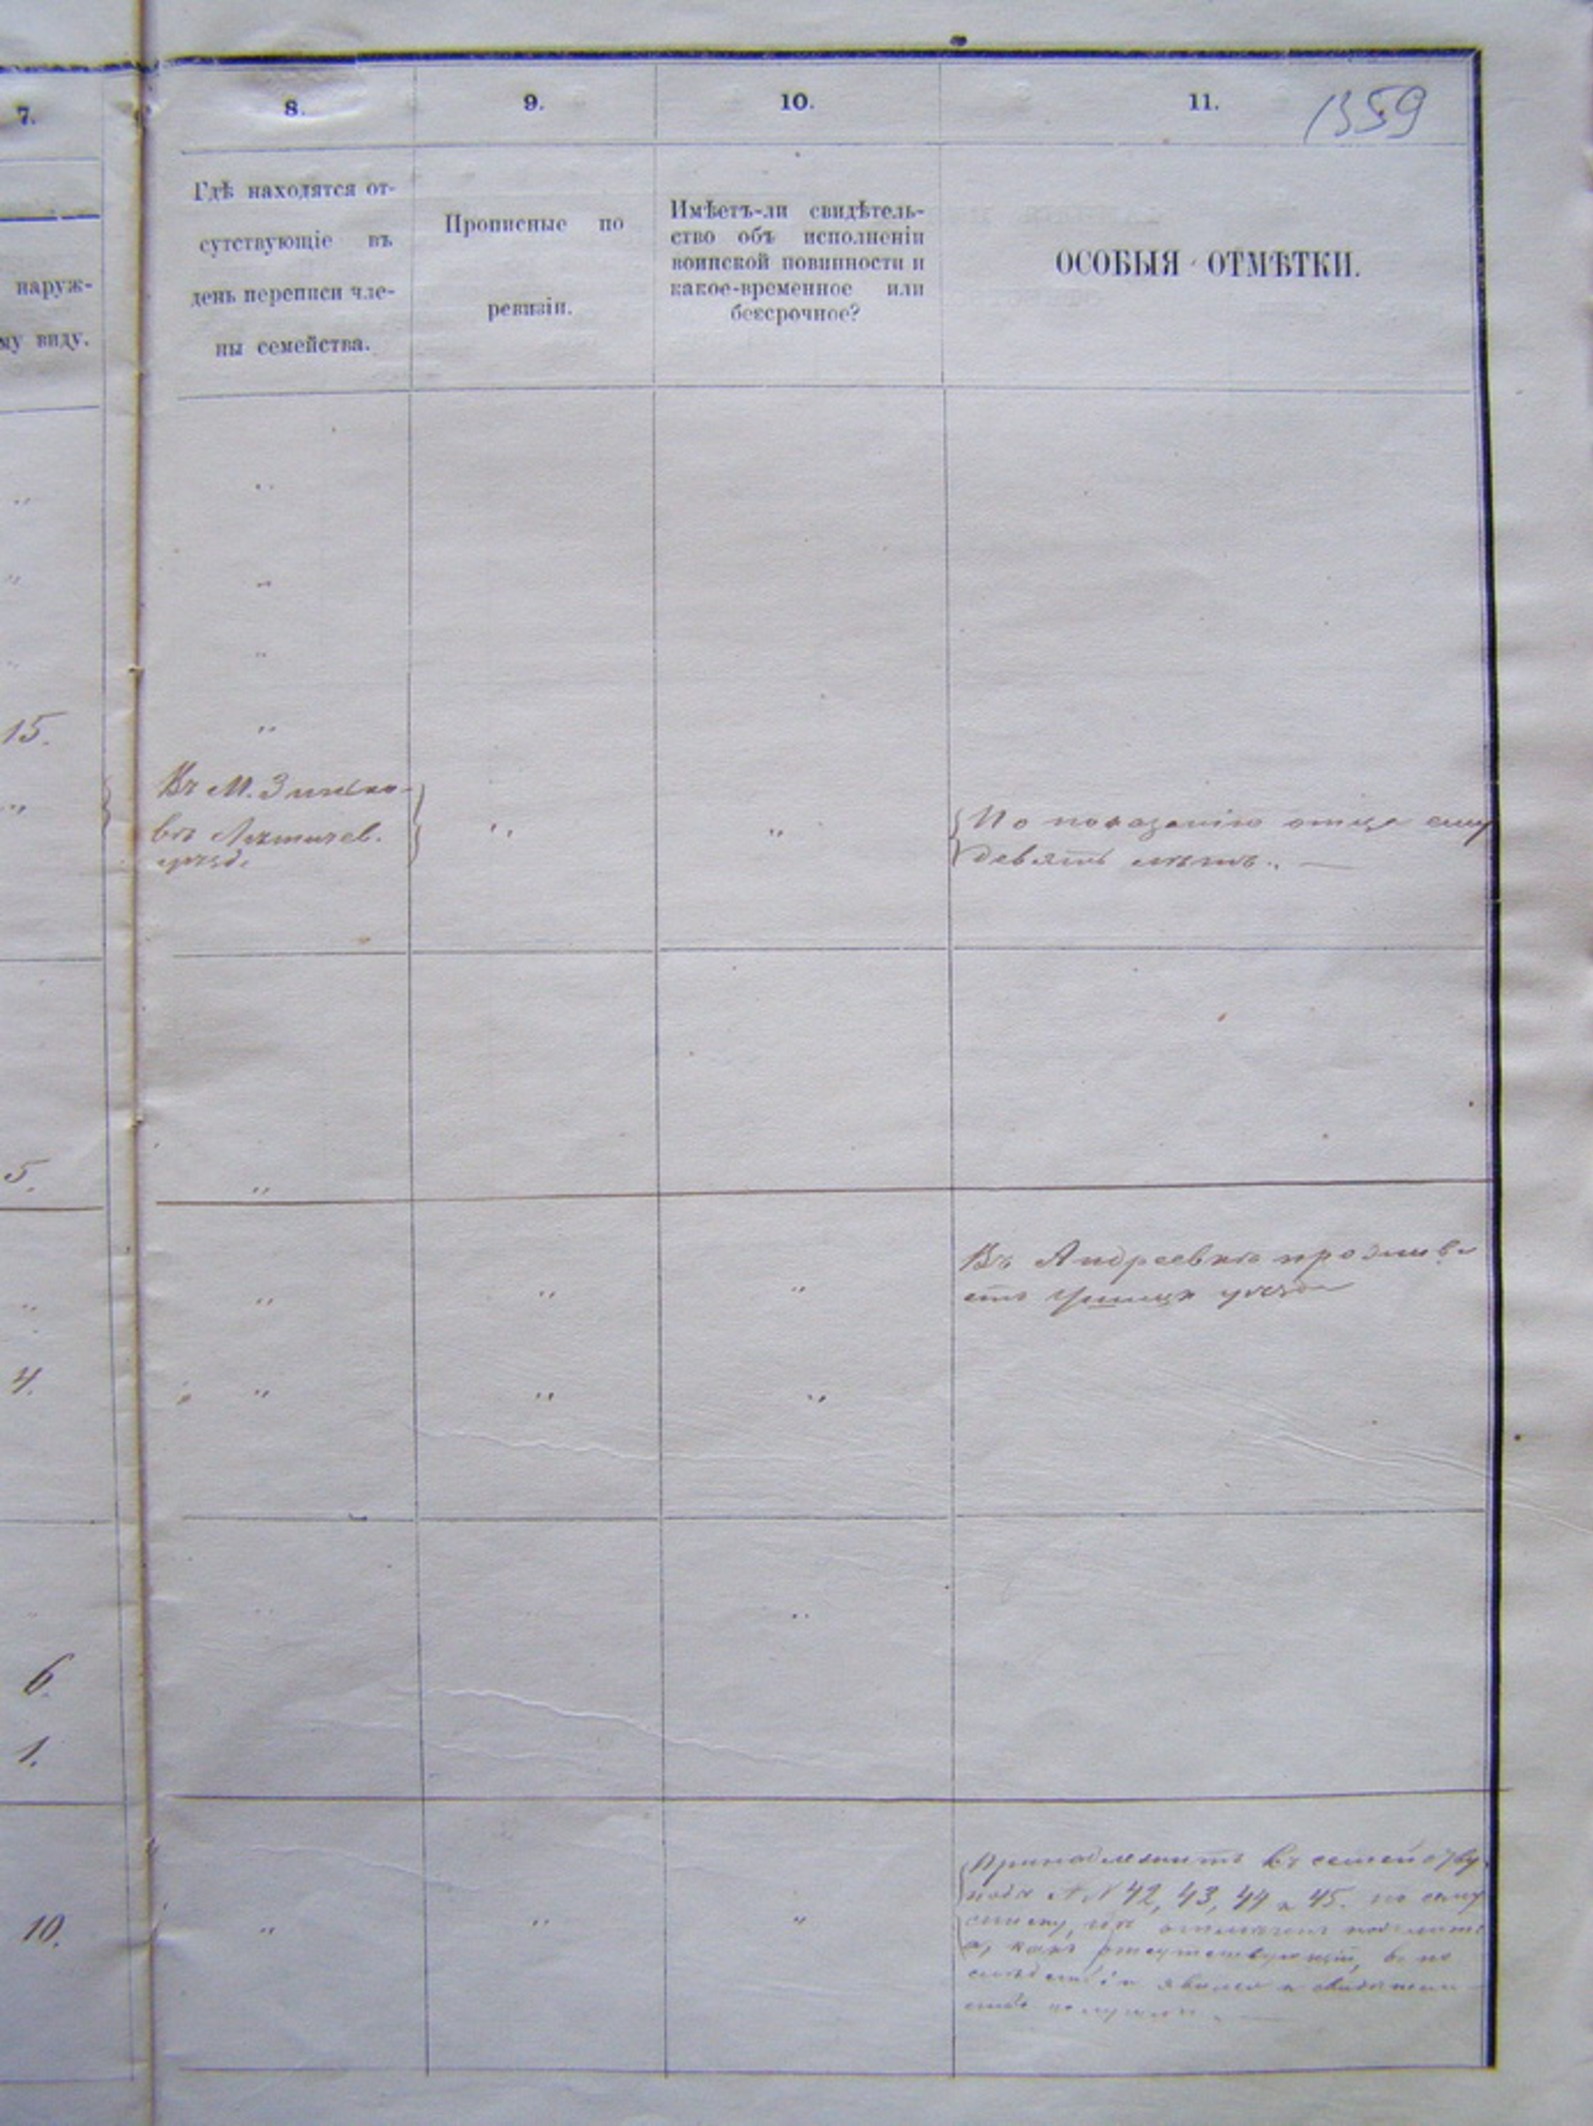 7.
8.
9.
10.
11.
1359
наруж-
му виду.
Гдѣ находятся от-
сутствующіе въ
день переписи чле-
ны семейства.
Прописные по
ревизіи.
Имѣетъ-ли свидѣтель-
ство объ исполненіи
воинской повинности и
какое-временное или
безсрочное?
ОСОБЫЯ ОТМѢТКИ.
15.
Въ М. Зинько-
вѣ Летичев.
уѣзд.
По показанію отца ему
девять лѣтъ.
5.
Въ Андреевкѣ прожива-
етъ уѣзда
4.
6.
1.
10.
Принадлежитъ къ семейству
подъ №№ 42, 43, 44 и 45. по сему
списку,
какъ отсутствующій, въ по
слѣдствіи явился и